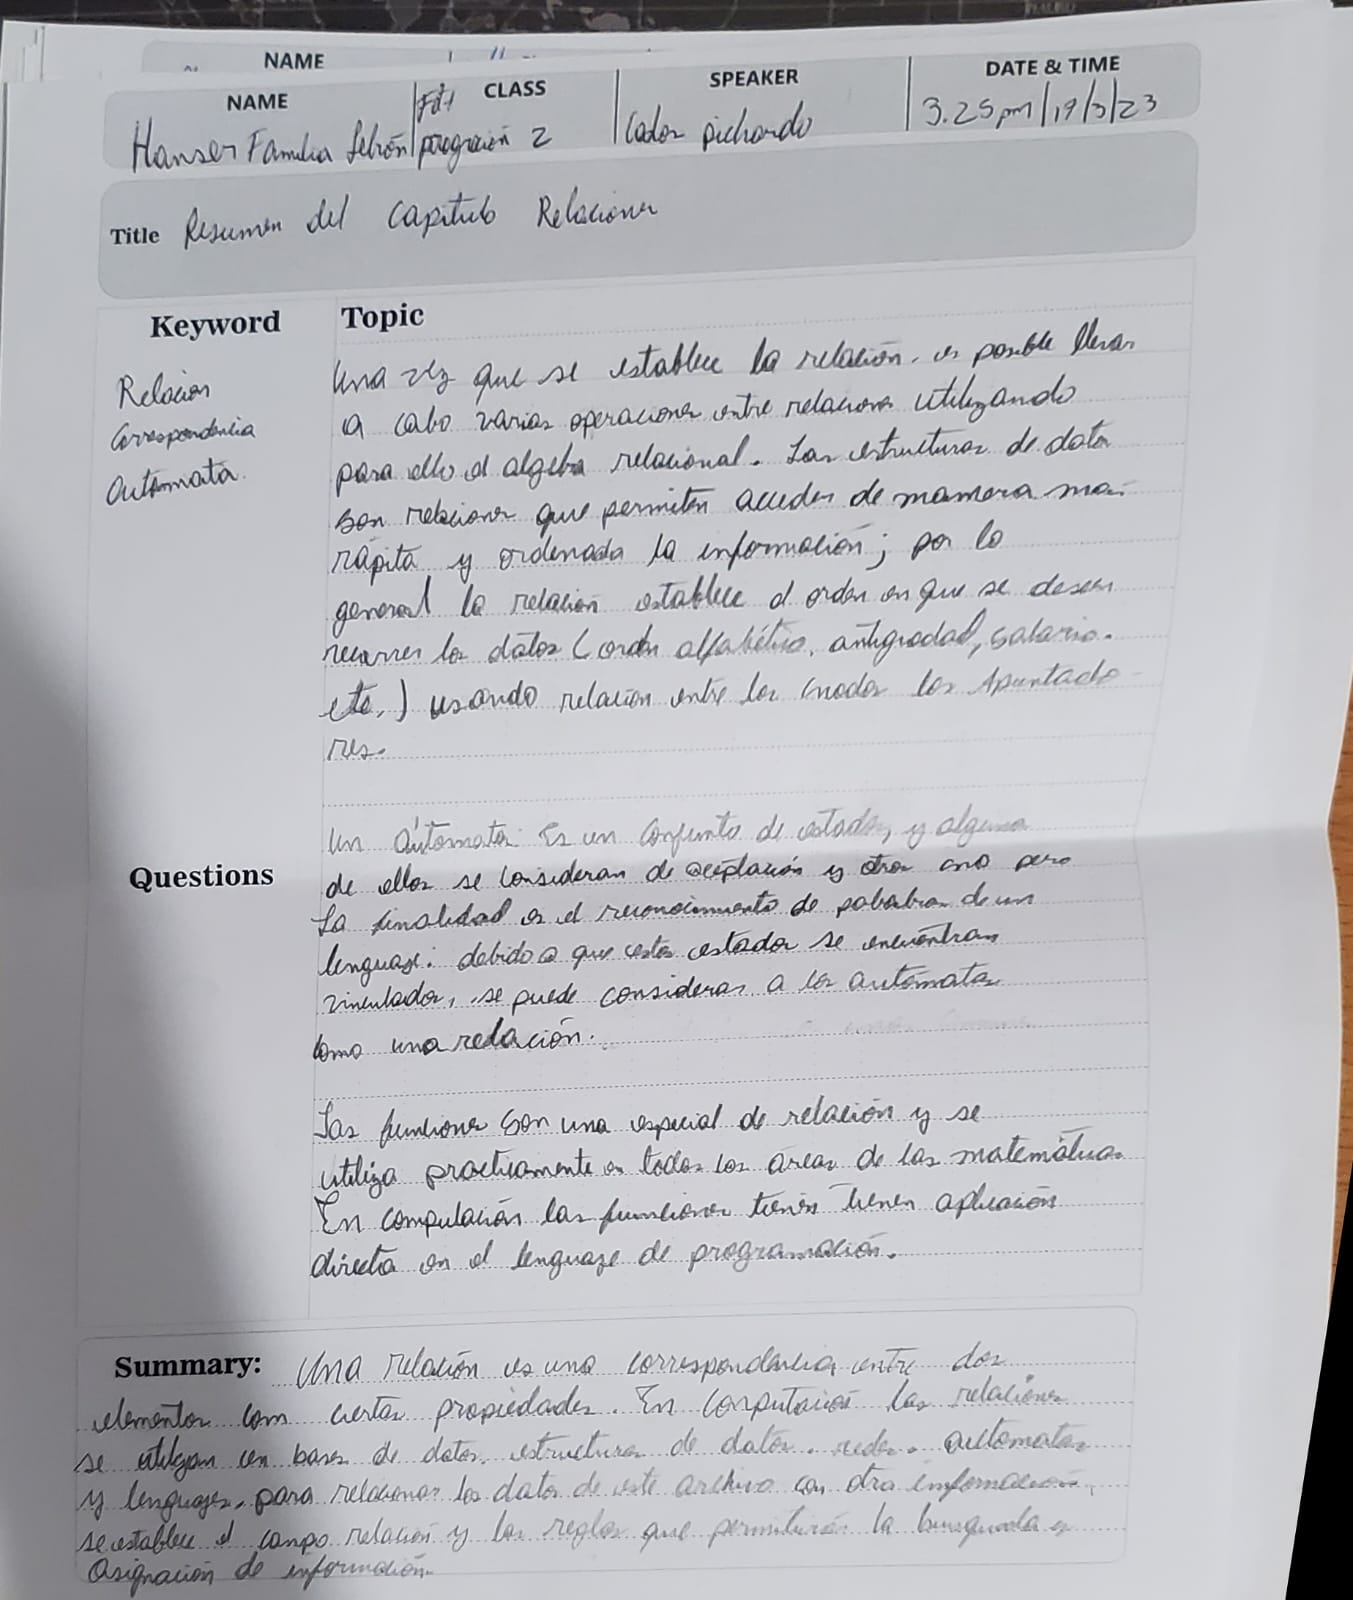 NAME
NAME CLASS SPEAKER DATE & TIME
Hanser Familia Lebrón 2 pichardo 3.25pm/19/3/23
Title Resumen del Capitulo Relaciones
Keyword Topic
Relacion
Correspondencia
Automata.
Una vez que se establece la relación. es posible llevar
a cabo varias operaciones entre relaciones utilizando
para ello el algebra relacional. Las estructuras de datos
son relaciones que permiten acceder de manera mas
rápita y ordenada la información; por lo
general la relación establece el orden en que se desean
recorrer los datos (orden alfabético, antigüedad, salario.
etc.) usando relación entre los (nodos los Apuntado-
res.
Questions
Un automata Es un conjunto de estados, y algunos
de ellos se consideran de aceptación y otros no pero
La finalidad es el reconocimiento de palabras de un
lenguaje. debido a que estos estados se encuentran
vinculados, se puede considerar a los automatas
como una relación.
Las funciones son una especial de relación y se
utiliza practicamente en todas las áreas de las matemáticas.
En computación las funciones tienen tienen aplicación
directa en el lenguaje de programación.
Summary: Una relación es una correspondencia entre dos
elementos com ciertas propiedades. En computación las relaciones
se utilizan en bases de datos, estructuras de datos. redes. automatas
y lenguajes. para relacionar los datos de este archivo con otra información,
se establece el campo relación y las reglas que permitirán la busqueda y
asignación de información.